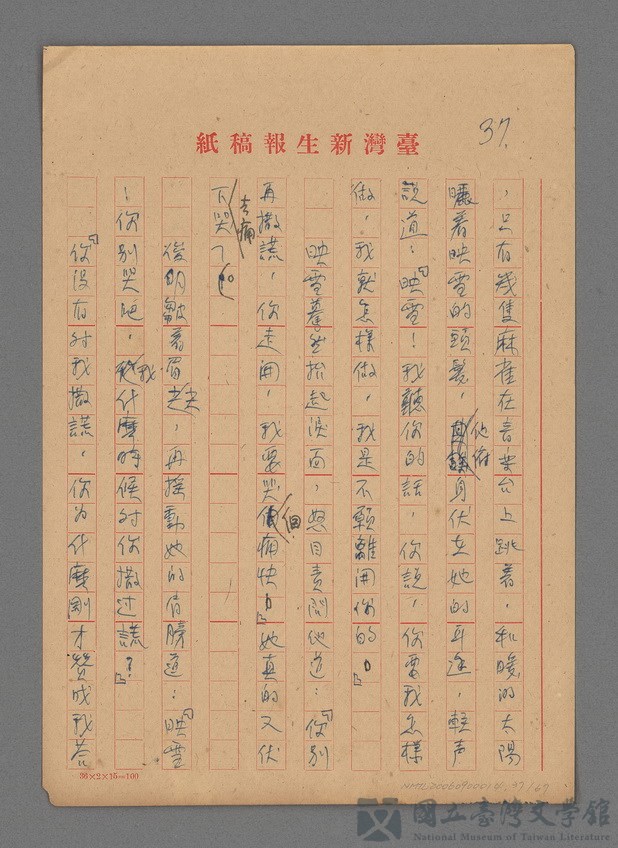 37.
紙稿報生新灣臺
，只有幾隻麻雀在音樂台上跳着，和暖的太陽
曬着映雪的頭髮，他俯身伏在她的耳邊，輕声
說道：「映雪！我聽你的話，你說，你要我怎樣
做，我就怎樣做，我是不願離開你的。」
映雪驀然抬起淚面，怒目責問他道：「你別
再撒謊，你走開，我要哭個痛快。」她真的又伏
下去痛哭了。
後明皺着眉，再搖動她的肩膀道：「映雪
！你別哭吧，我什麼時候对你撒过謊？」
「你沒有对我撒謊，你为什麼剛才贊成我答
36×2×15=100
NMTL20050900014 37/67
國立臺灣文学館
National Museum of Taiwan Literature